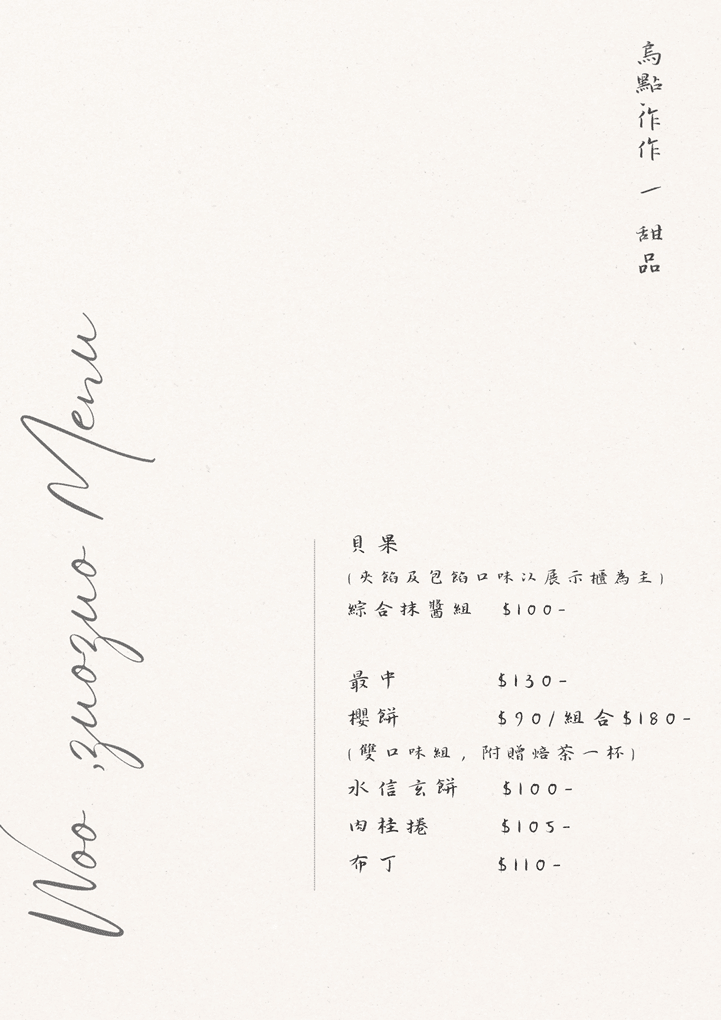 烏點作作 一 甜品
Woo ,zuozuo Menu
貝果
(夾餡及包餡口味以展示櫃為主)
綜合抹醬組 $100-
最中 $130-
櫻餅 $90/組合$180-
(雙口味組,附贈焙茶一杯)
水信玄餅 $100-
肉桂捲 $105-
布丁 $110-